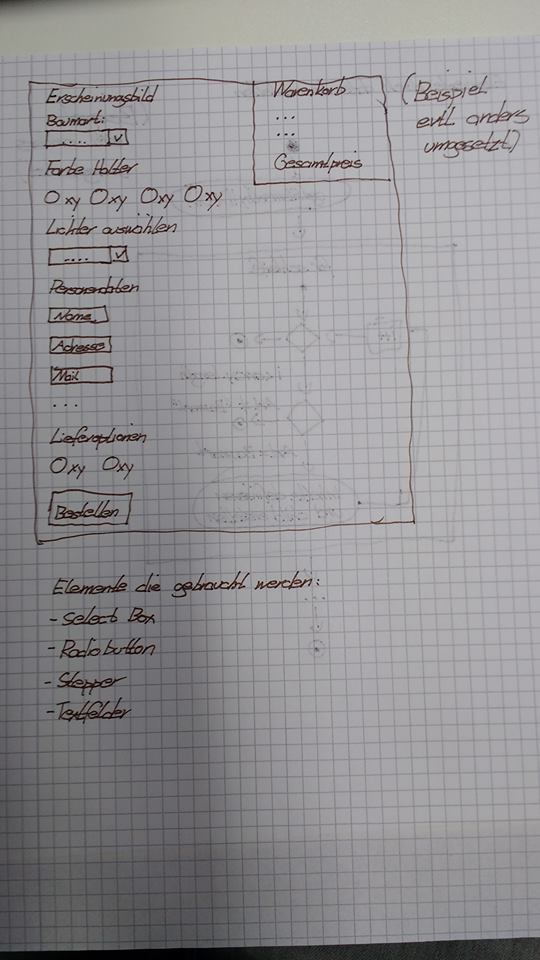 Erscheinungsbild
Baumart:
....
Farbe Halter
O xy O xy O xy O xy
Lichter auswählen
....
Personendaten
Name
Adresse
Mail
...
Lieferoptionen
O xy O xy
Bestellen
Warenkorb
...
...
Gesamtpreis
(Beispiel
evtl anders
umgesetzt)
Elemente die gebraucht werden:
- Select Box
- Radiobutton
- Stepper
- Textfelder